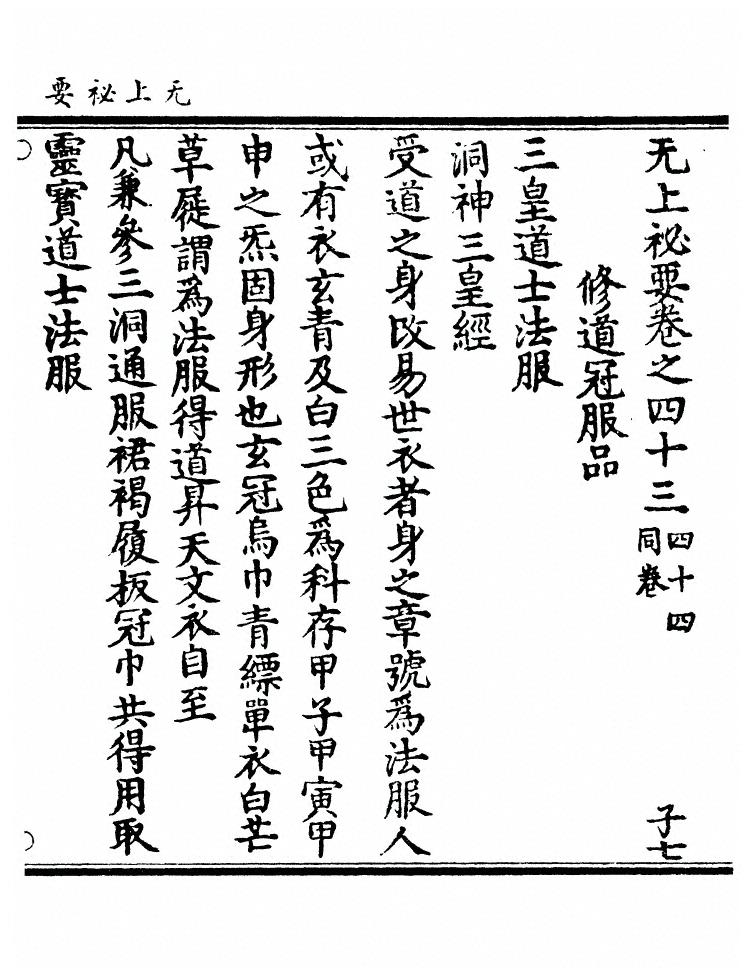 无上祕要
无上祕要卷之四十三 四十四同卷 子七
修道冠服品
三皇道士法服
洞神三皇經
受道之身改易世衣者身之章號爲法服人
或有衣玄青及白三色爲科存甲子甲寅甲
申之炁固身形也玄冠烏巾青縹單衣白芒
草屣謂爲法服得道昇天文衣自至
凡兼參三洞通服裙褐履板冠巾共得用取
靈寶道士法服